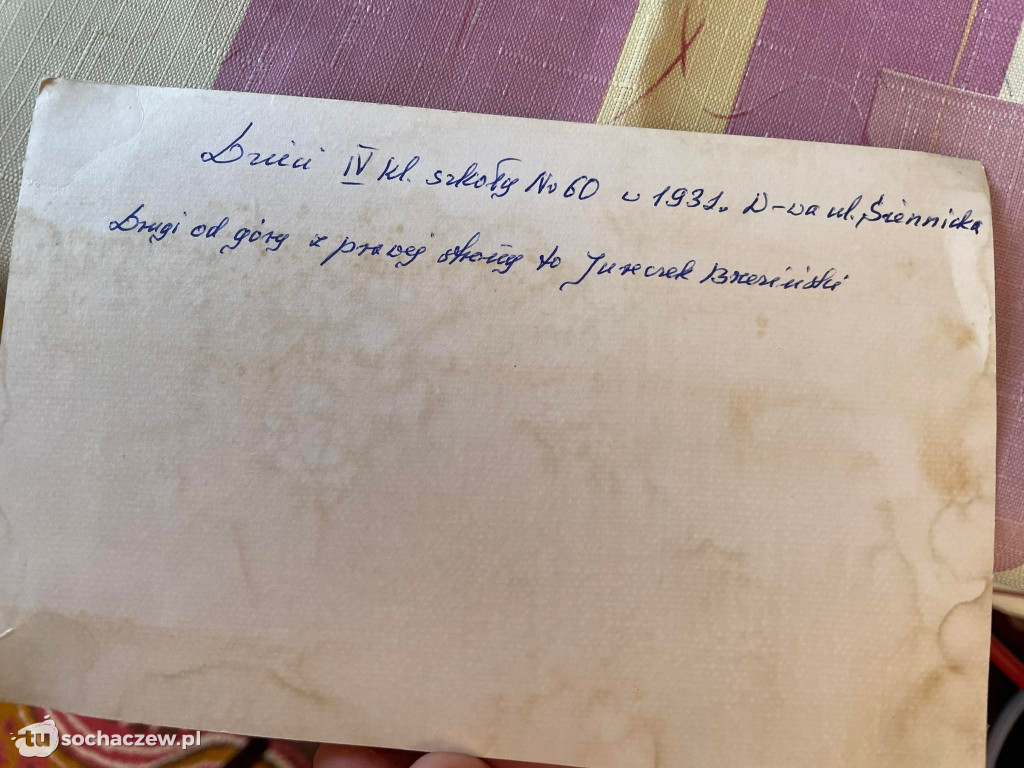 Dzieci IV kl. szkoły No 60 w 1931. W-wa ul. Siennicka
Drugi od góry z prawej strony to Jureczek Brzeziński
tusochaczew.pl